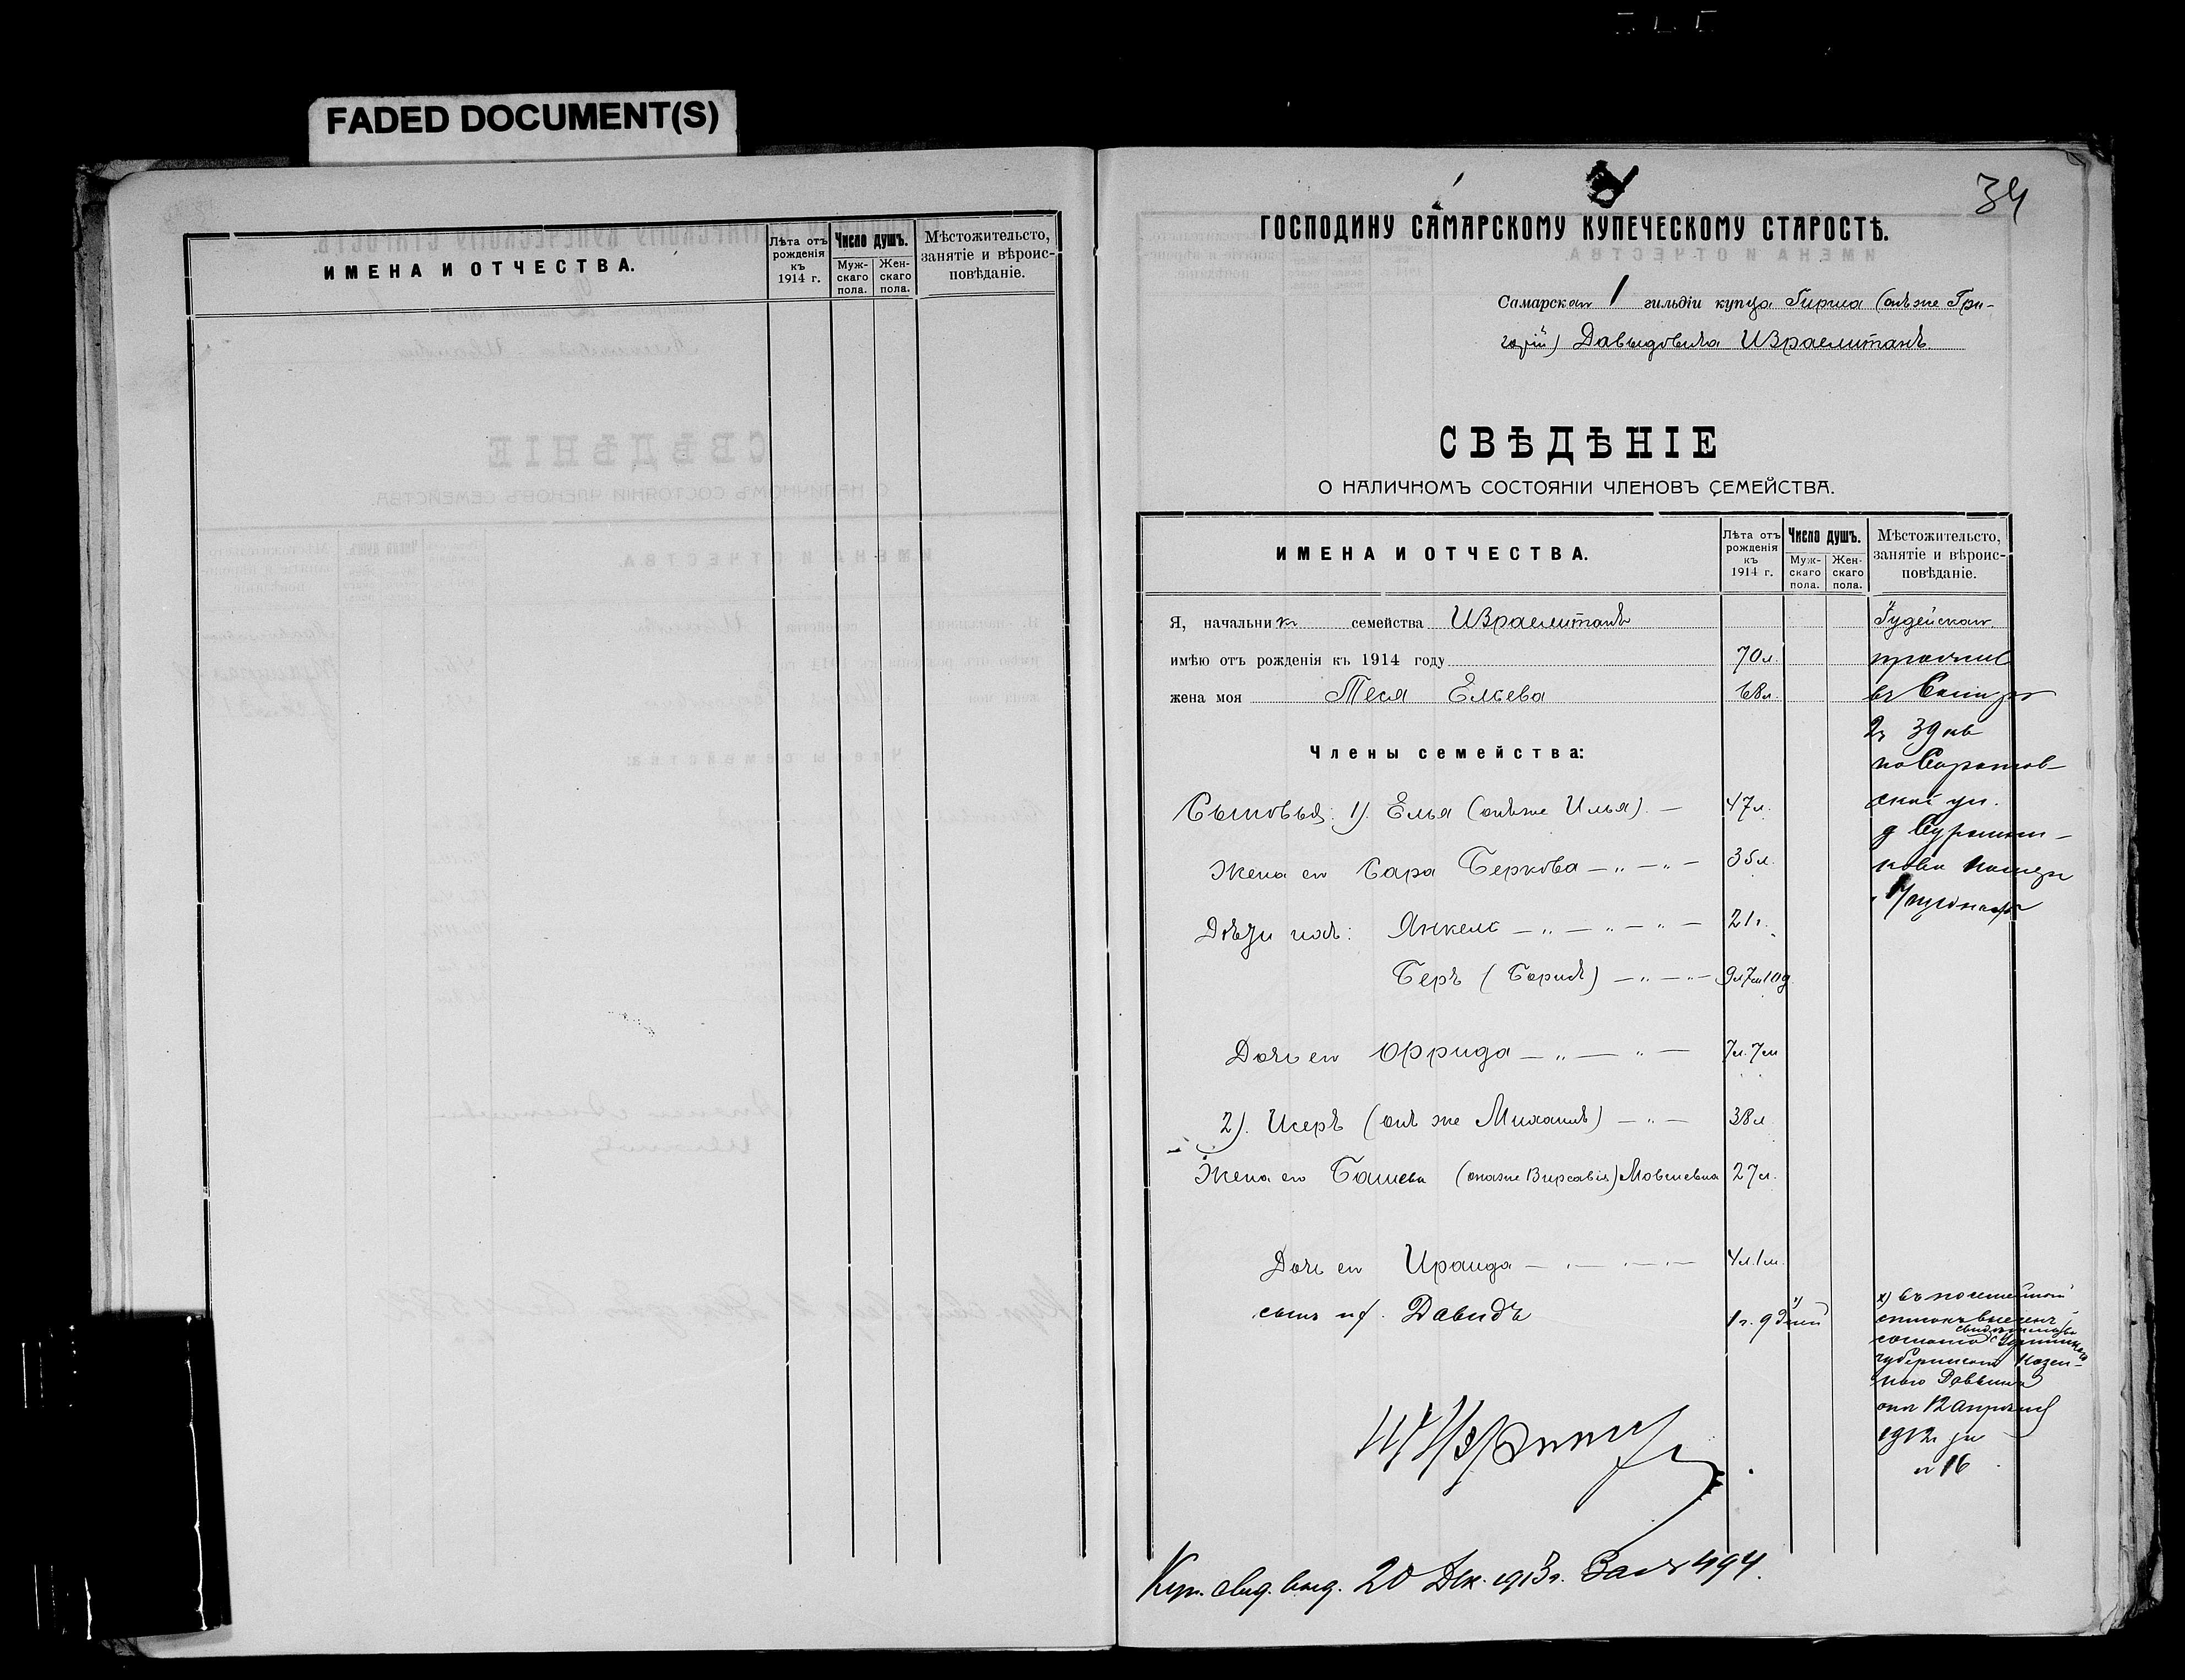 FADED DOCUMENT(S)
ИМЕНА И ОТЧЕСТВА.
Лѣта отъ рожденія къ 1914 г.
Число душъ.
Мужскаго пола.
Женскаго пола.
Мѣстожительсто, занятіе и вѣроисповѣданіе.
34
ГОСПОДИНУ САМАРСКОМУ КУПЕЧЕСКОМУ СТАРОСТѢ.
Самарскаго 1 гильдіи купца Гирша (онъ же Гри-
горій) Давыдовича Израелитанъ
СВѢДѢНІЕ
О НАЛИЧНОМЪ СОСТОЯНІИ ЧЛЕНОВЪ СЕМЕЙСТВА.
ИМЕНА И ОТЧЕСТВА.
Лѣта отъ рожденія къ 1914 г.
Число душъ.
Мужскаго пола.
Женскаго пола.
Мѣстожительсто, занятіе и вѣроисповѣданіе.
Я, начальникъ семейства Израелитанъ
имѣю отъ рожденія къ 1914 году 70 л.
жена моя Теся Елсева 68 л.
Іудейскаго
прожив
въ Самарѣ
по Саратов-
ской ул.
Члены семейства:
Сыновья: 1). Елья (онъ же Илья). — 47 л.
Жена его Сара Беркова — „ — „ — 35 л.
Дѣти ихъ: Янкель — „ — „ — „ — 21 г.
Беръ (Борисъ) — „ — „ — 9 л 7 м 10 д
Дочь его Фррида — „ — „ — 7 л. 7 м
2). Исеръ (онъ же Михаилъ) — „ — 38 л
Жена его Башева (она же Вирсавія) Мовшевна 27 л.
Дочь его Ираида 4 л. 1 м.
сынъ их. Давидъ 1 г. 9 дней
х) въ посемейный
списокъ внесенъ
губернскаго Казен-
1912 г за
№ 16
Куп. свид. выд. 20 Дек. 1913 г. За № 494.